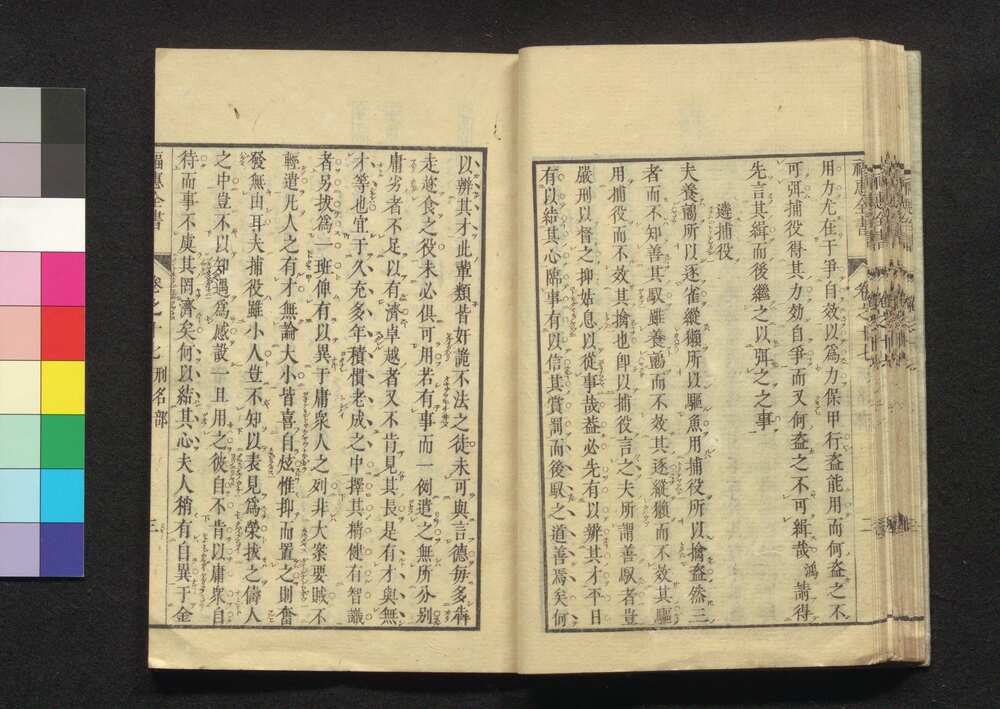 用力尤在于爭自效以為力保甲行盜能用而何盜之不
可弭捕役得其力効自爭而又何盜之不可緝哉鴻請得
先言其緝而後繼之以弭之之事
遴捕役
夫養鷂所以逐雀縱獺所以驅魚用捕役所以擒盜然三
者而不知善其馭雖養鷂而不效其逐縱獺而不效其驅
用捕役而不效其擒也卽以捕役言之夫所謂善馭者豈
嚴刑以督之抑姑息以從事哉葢必先有以辨其才平日
有以結其心臨事有以信其賞罰而後馭之道善焉矣何
以辨其才此輩類皆奸詭不法之徒未可與言德每多犇
走逐食之役未必俱可用若有事而一例遣之無所分别
庸劣者不足以有濟卓越者又不肯見其長是有才與無
才等也宜于久充多年積慣老成之中擇其精健有智識
者另拔為一班俾有以異于庸衆人之列非大案要賊不
輕遣凡人之有才無論大小皆喜自炫惟抑而置之則奮
發無由耳夫捕役雖小人豈不知以表見為榮拔之儔人
之中豈不以知遇為感設一旦用之彼自不肯以庸衆自
待而事不虞其罔濟矣何以結其心夫人稍有自異于金
福惠全書 卷之十七 刑名部 三
福惠全書 卷之十七 二